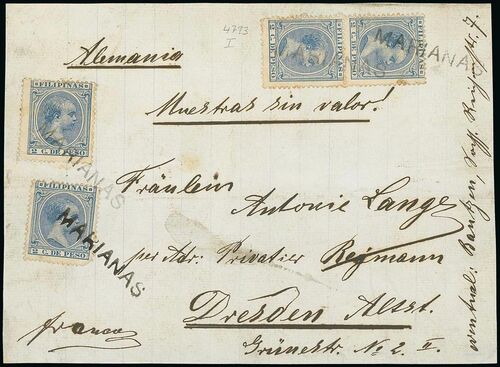 4793
I
Alemania
Muestras sin valor!
FILIPINAS
2 C. DE PESO
FILIPINAS
2 C. DE PESO
FILIPINAS
2 C. DE PESO
FILIPINAS
2 C. DE PESO
MARIANAS
MARIANAS
MARIANAS
MARIANAS
Fräulein
Antonie Lange
per Adr: Privatier Regmann
Dresden Altst.
Grünestr. No 2. II.
franco
eventual: Bautzen, Str. 7.